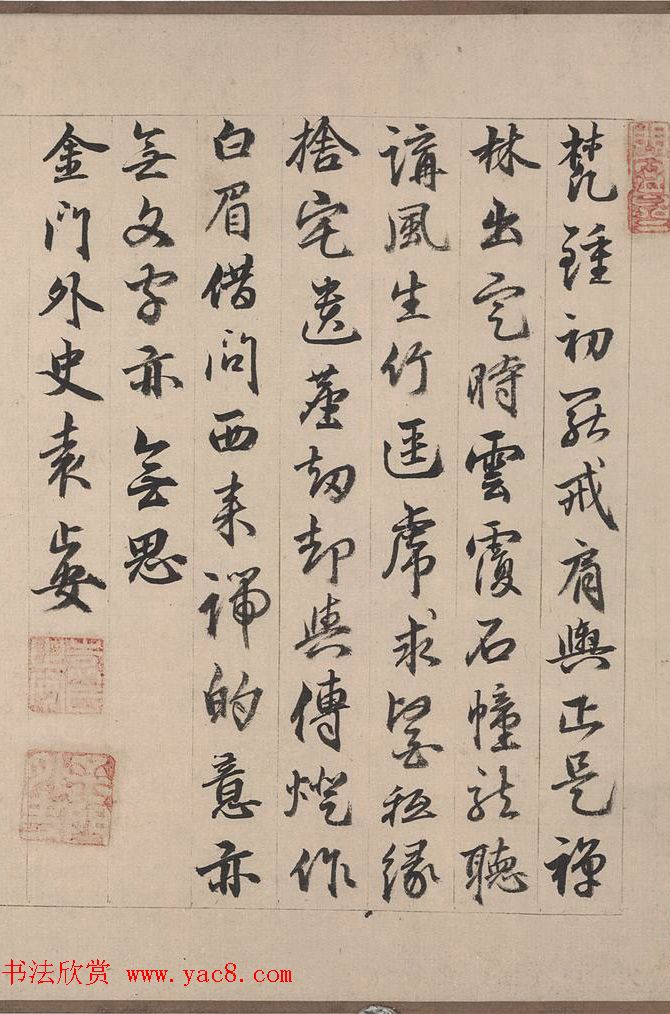 梵鍾初罷戒肩輿正是禪
林出定時雲覆石幢龍聽
講風生竹逕虎求醫秖緣
捨宅遺塵劫却與傳燈作
白眉借問西来諦的意亦
無文字亦無思
金門外史袁
书法欣赏 www.yac8.com